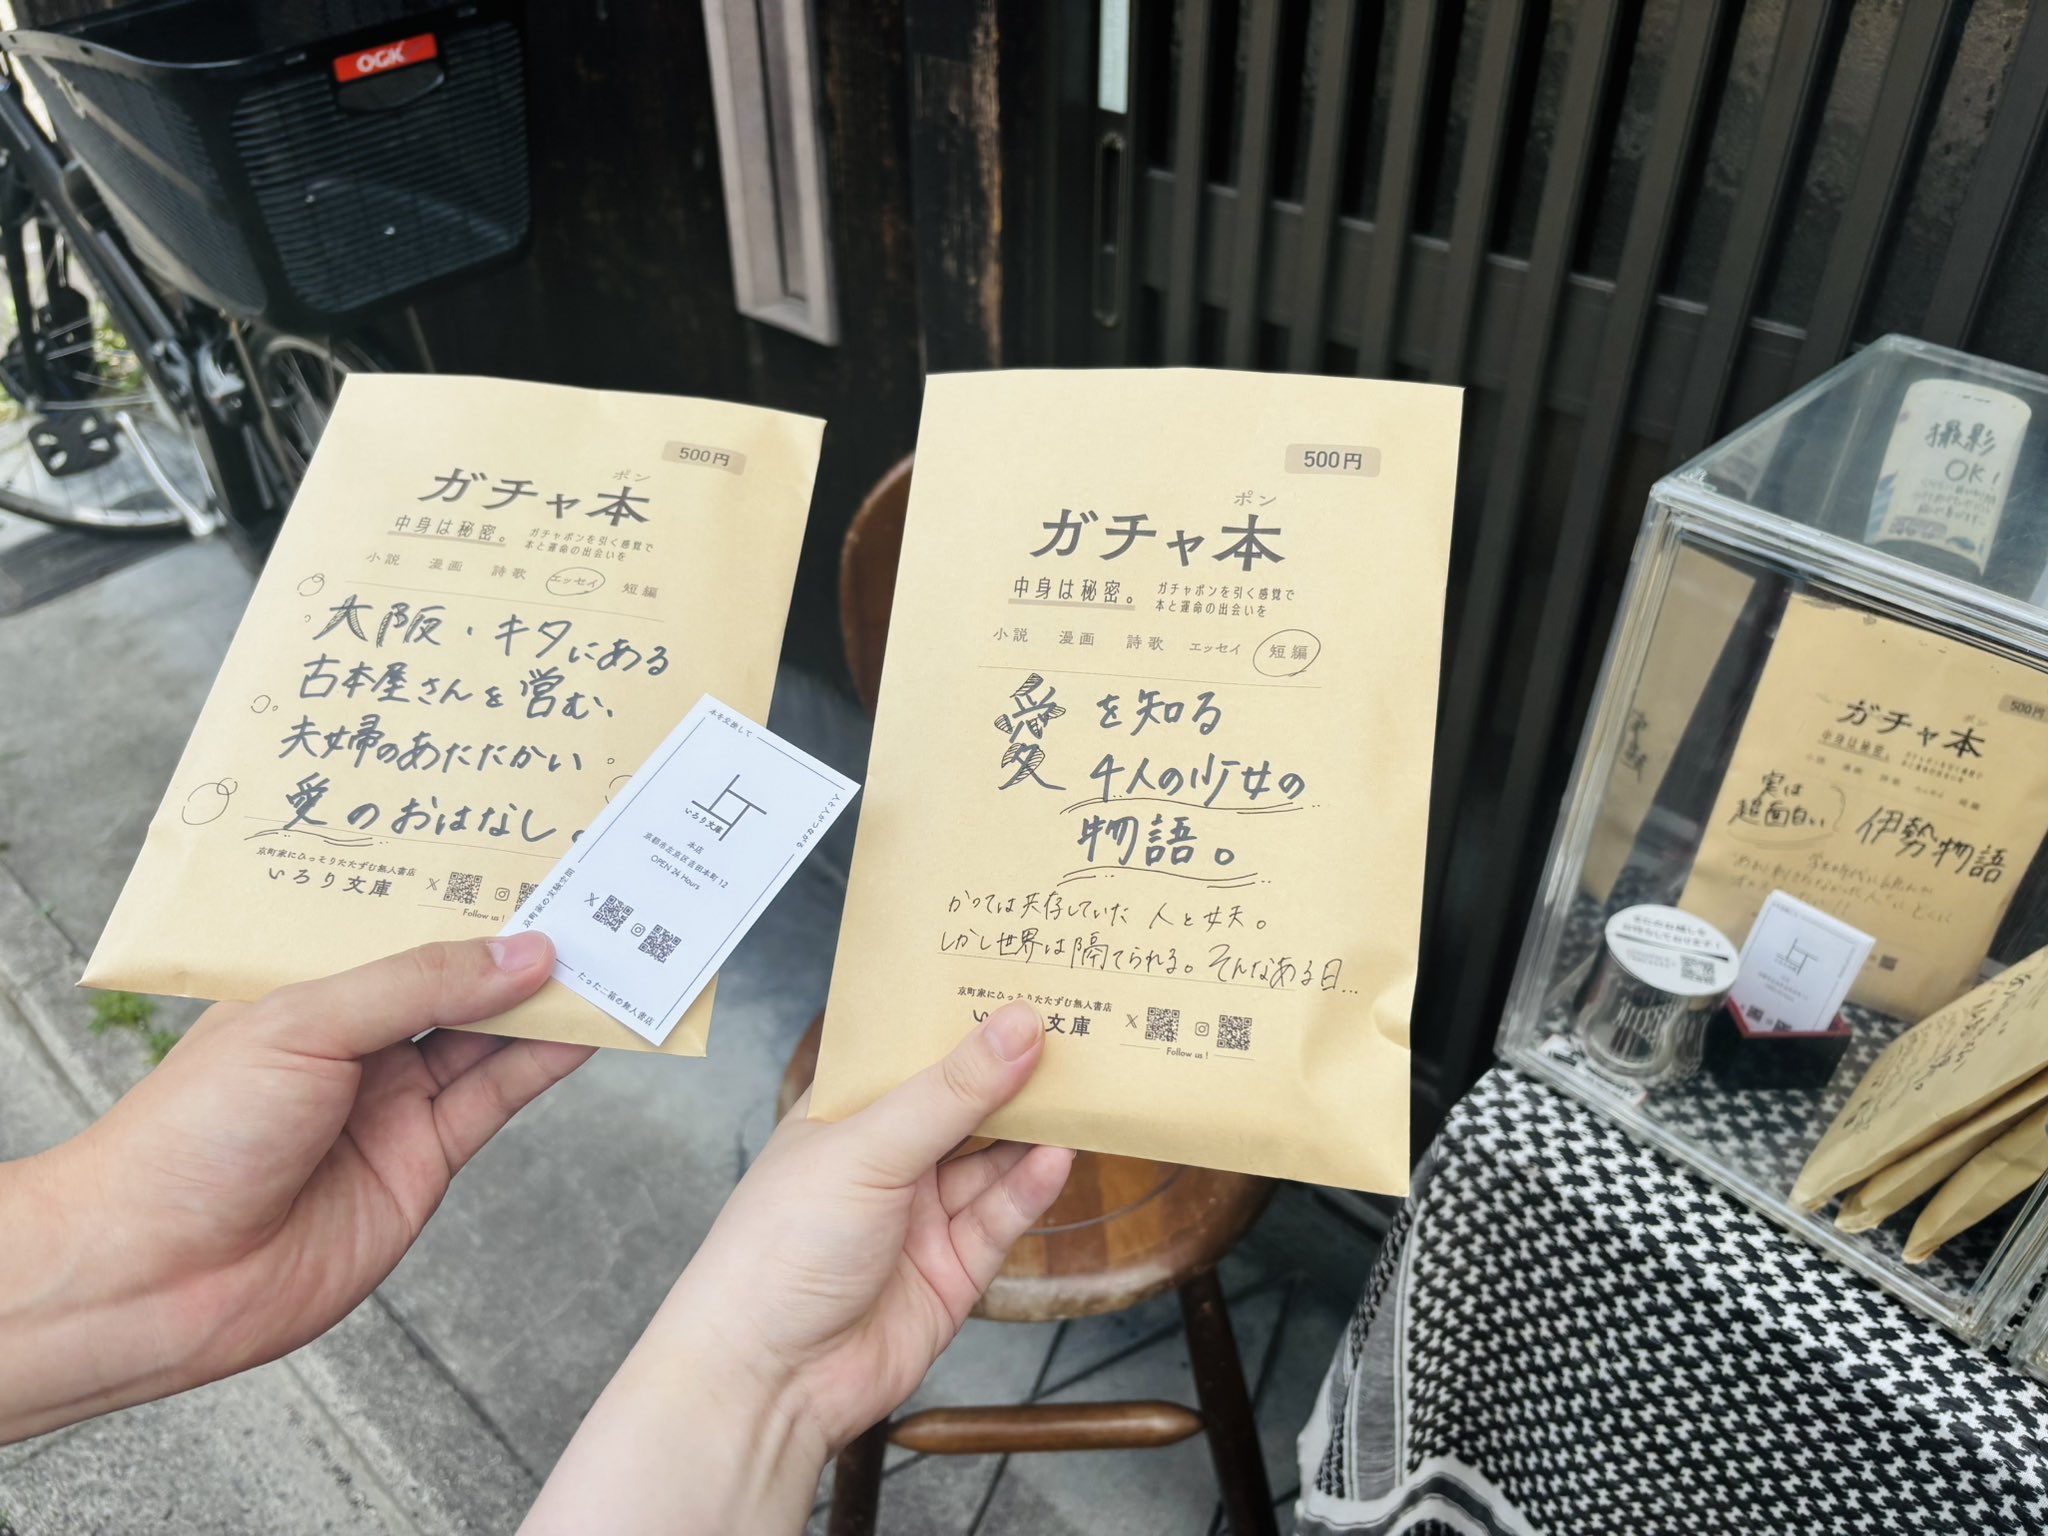 OGK
500円
ポン
ガチャ本
中身は秘密。
ガチャポンを引く感覚で
本と運命の出会いを
小説 漫画 詩歌 エッセイ 短編
大阪・キタにある
古本屋さんを営む、
夫婦のあたたかい
愛のおはなし。
京町家にひっそりたたずむ無人書店
いろり文庫
Follow us !
本を交換して
人と人がつながる
いろり文庫
本店
京都市左京区吉田本町 12
OPEN 24 Hours
京町家の実験空間
たった二箱の無人書店
500円
ポン
ガチャ本
中身は秘密。
ガチャポンを引く感覚で
本と運命の出会いを
小説 漫画 詩歌 エッセイ 短編
愛を知る
4人の少女の
物語。
かつては共存していた 人と妖。
しかし世界は隔てられる。そんなある日…
京町家にひっそりたたずむ無人書店
い 文庫
Follow us !
撮影
OK!
500円
ポン
ガチャ本
中身は秘密。
実は
超面白い
伊勢物語